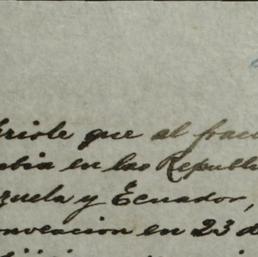 briole que al frac
mbia en las Republi
zuela y Ecuador,
onvocacion en 23 d